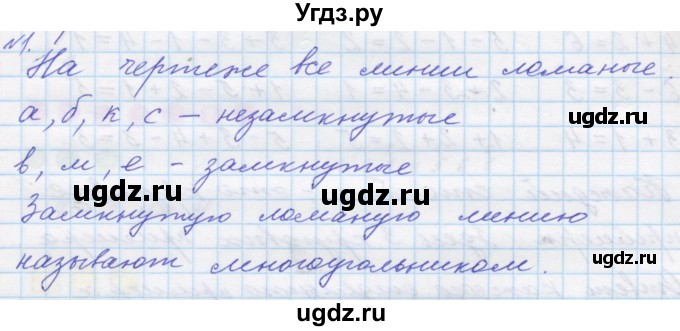 Угдз.ру
№1.
На чертеже все линии ломаные.
ugdz.ru
а, б, к, с – незамкнутые
ugdz.ru
в, м, е – замкнутые
ugdz.ru
ugdz.ru
Замкнутую ломаную линию
называют многоугольником.
ugdz.ru